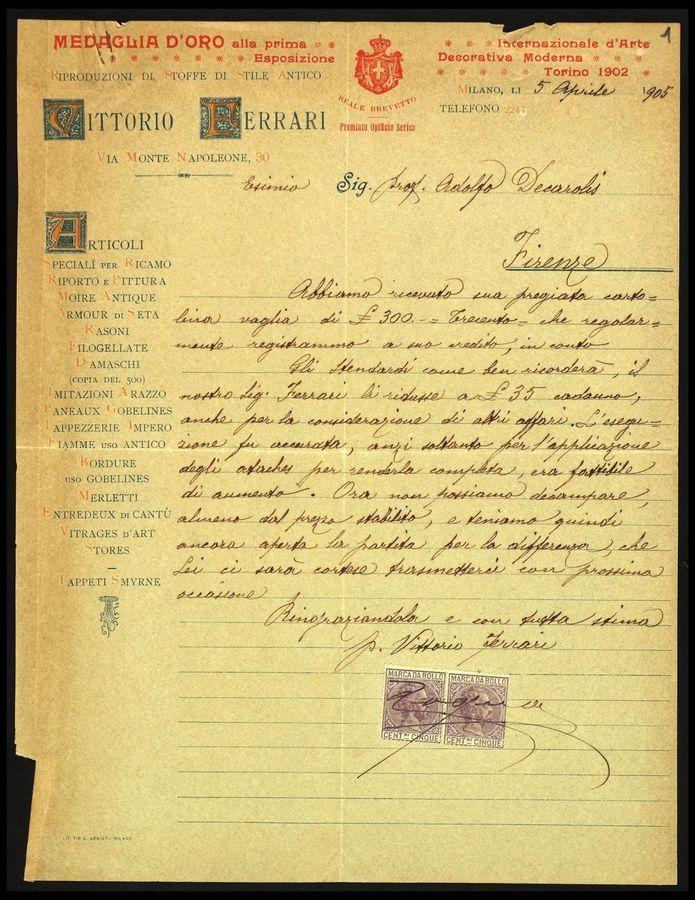 1
MEDAGLIA D'ORO alla prima Esposizione
Internazionale d'Arte Decorativa Moderna
Torino 1902
RIPRODUZIONI DI STOFFE DI STILE ANTICO
REALE BREVETTO
Premiato Opificio Serico
MILANO, LI 5 Aprile 1905
TELEFONO 2241
VITTORIO FERRARI
VIA MONTE NAPOLEONE, 30
Esimio Sig. prof. Adolfo Decarolis
Firenze
ARTICOLI
SPECIALI PER RICAMO
RIPORTO E PITTURA
MOIRE ANTIQUE
ARMOUR DI SETA
RASONI
FILOGELLATE
DAMASCHI
(COPIA DEL 500)
IMITAZIONI ARAZZO
PANEAUX GOBELINES
TAPPEZZERIE IMPERO
FIAMME USO ANTICO
BORDURE
USO GOBELINES
MERLETTI
ENTREDEUX DI CANTÙ
VITRAGES D'ART
STORES
TAPPETI SMYRNE
Abbiamo ricevuto sua pregiata carto=
lina vaglia di £ 300.-= Trecento= che regolar=
mente registrammo a suo credito, in conto
Gli Stendardi come ben ricorderà, il
nostro Sig. Ferrari li ridusse a £ 35 cadauno,
anche per la considerazione di altri affari. L'esegu=
zione fu accurata, anzi soltanto per l'applicazione
degli ataches per renderla completa, era fattibile
di aumento. Ora non possiamo decampare,
almeno dal prezzo stabilito, e teniamo quindi
ancora aperta la partita per la differenza, che
Lei ci sarà cortese trasmetterci con prossima
occasione
Ringraziandola e con tutta stima
p. Vittorio Ferrari
MARCA DA BOLLO
CENT.MI CINQUE
MARCA DA BOLLO
CENT.MI CINQUE